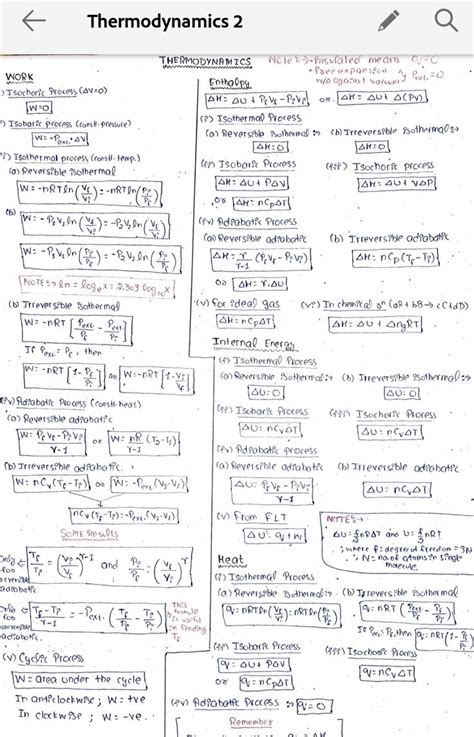 Thermodynamics 2
THERMODYNAMICS
Note :-> • Insulated means q=0
• free expansion
w/o against vacuum } Pext.=0
WORK
i) Isochoric Process (ΔV=0)
W=0
Isobaric process (const. pressure)
W=-Pext.ΔV
Isothermal process (const. temp.)
(a) Reversible isothermal
W=-nRTln(Vf/Vi)=-nRTln(Pi/Pf)
(b)
W=-PiViln(Vf/Vi)=-PiViln(Vf/Vi)
W=-PiViln(Pi/Pf)=-PiViln(Pi/Pf)
NOTE:-> ln = logex = 2.303 log10x
(b) Irreversible isothermal
W=-nRT[Pext/Pf - Pext/Pi]
If Pext=Pf, then
W=-nRT[1-Pf/Pi] or W=-nRT[1-Vi/Vf]
(iv) Adiabatic Process (const. heat)
(a) Reversible adiabatic
W=PfVf-PiVi/γ-1 or W=nR/γ-1(T2-T1)
(b) Irreversible adiabatic.
W=nCv(Tf-Ti) or W=-Pext.(V2-V1)
nCv(Tf-Ti)=-Pext.(V2-V1)
Some Results
Only for reversible adiabatic.
Tf/Ti=(Vi/Vf)^γ-1 and Pf/Pi=(Vi/Vf)^γ
Only for irreversible adiabatic.
Tf-Ti/γ-1=-Pext.(Tf/Pf-Ti/Pi)
This formula is useful in finding Tf
(v) Cyclic Process
W=area under the cycle
In anticlockwise; W=+ve
In clockwise; W=-ve.
Enthalpy
ΔH=ΔU+PfVf-PiVi or ΔH=ΔU+Δ(PV)
(i) Isothermal Process
(a) Reversible isothermal:-> (b) Irreversible isothermal:->
ΔH=0 ΔH=0
(ii) Isobaric Process (iii) Isochoric process
ΔH=ΔU+PΔV ΔH=ΔU+VΔP
or ΔH=nCpΔT
(iv) Adiabatic Process
(a) Reversible adiabatic (b) Irreversible adiabatic
ΔH=γ/γ-1(PfVf-PiVi) ΔH=nCp(Tf-Ti)
or ΔH=γ.ΔU
(v) For ideal gas (vi) In chemical rxn (aA+bB→cC+dD)
ΔH=nCpΔT ΔH=ΔU+ΔngRT
Internal Energy
(i) Isothermal Process
(a) Reversible isothermal:-> (b) Irreversible isothermal:->
ΔU=0 ΔU=0
(ii) Isobaric Process (iii) Isochoric Process
ΔU=nCvΔT ΔU=nCvΔT
(iv) Adiabatic process
(a) Reversible adiabatic (b) Irreversible adiabatic
ΔU=PfVf-PiVi/γ-1 ΔU=nCvΔT
(v) From FLT
ΔU=q+w
NOTE:->
ΔU=f/2nRΔT and U=f/2nRT
; where f=degree of freedom=3N
; N=no. of atoms in single molecule.
Heat
(i) Isothermal Process
(a) Reversible isothermal:-> (b) Irreversible isothermal
q=nRTln(Vf/Vi)=nRTln(Pi/Pf) q=nRT(Pext/Pf-Pext/Pi)
If Pext=Pf, then q=nRT(1-Pf/Pi)
(ii) Isobaric Process (iii) Isochoric Process
q=ΔU+PΔV q=nCvΔT
or q=nCpΔT
(iv) Adiabatic Process :-> q=0
Remember